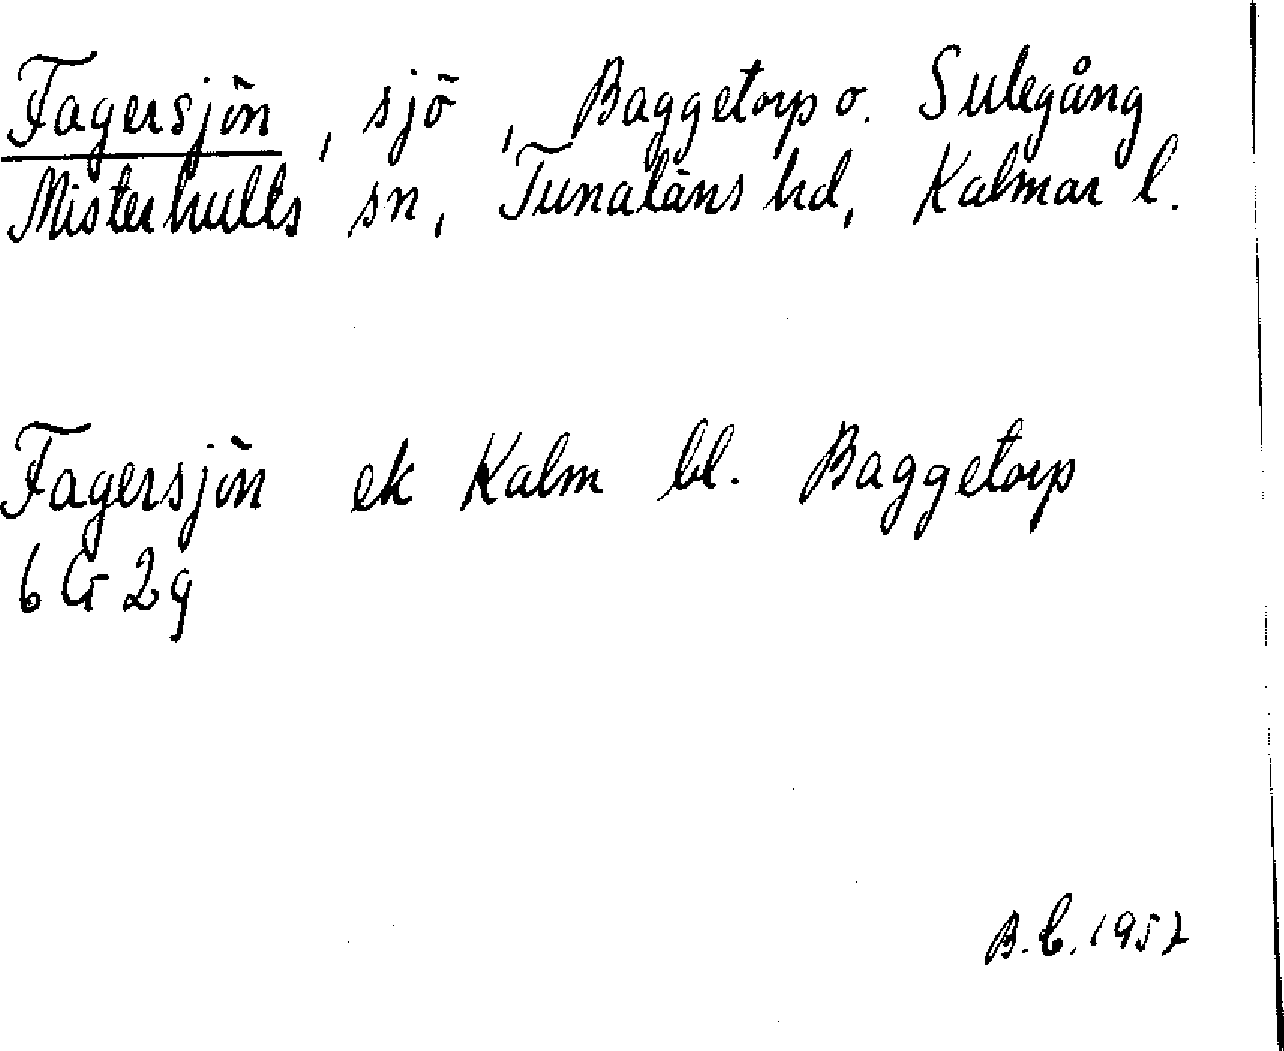 Fagersjön, sjö, Baggetorp o. Sulegång
Misterhults sn, Tunaläns hd, Kalmar l.
Fagersjön ek Kalm bl. Baggetorp
6 G 2g
B.C. 1952